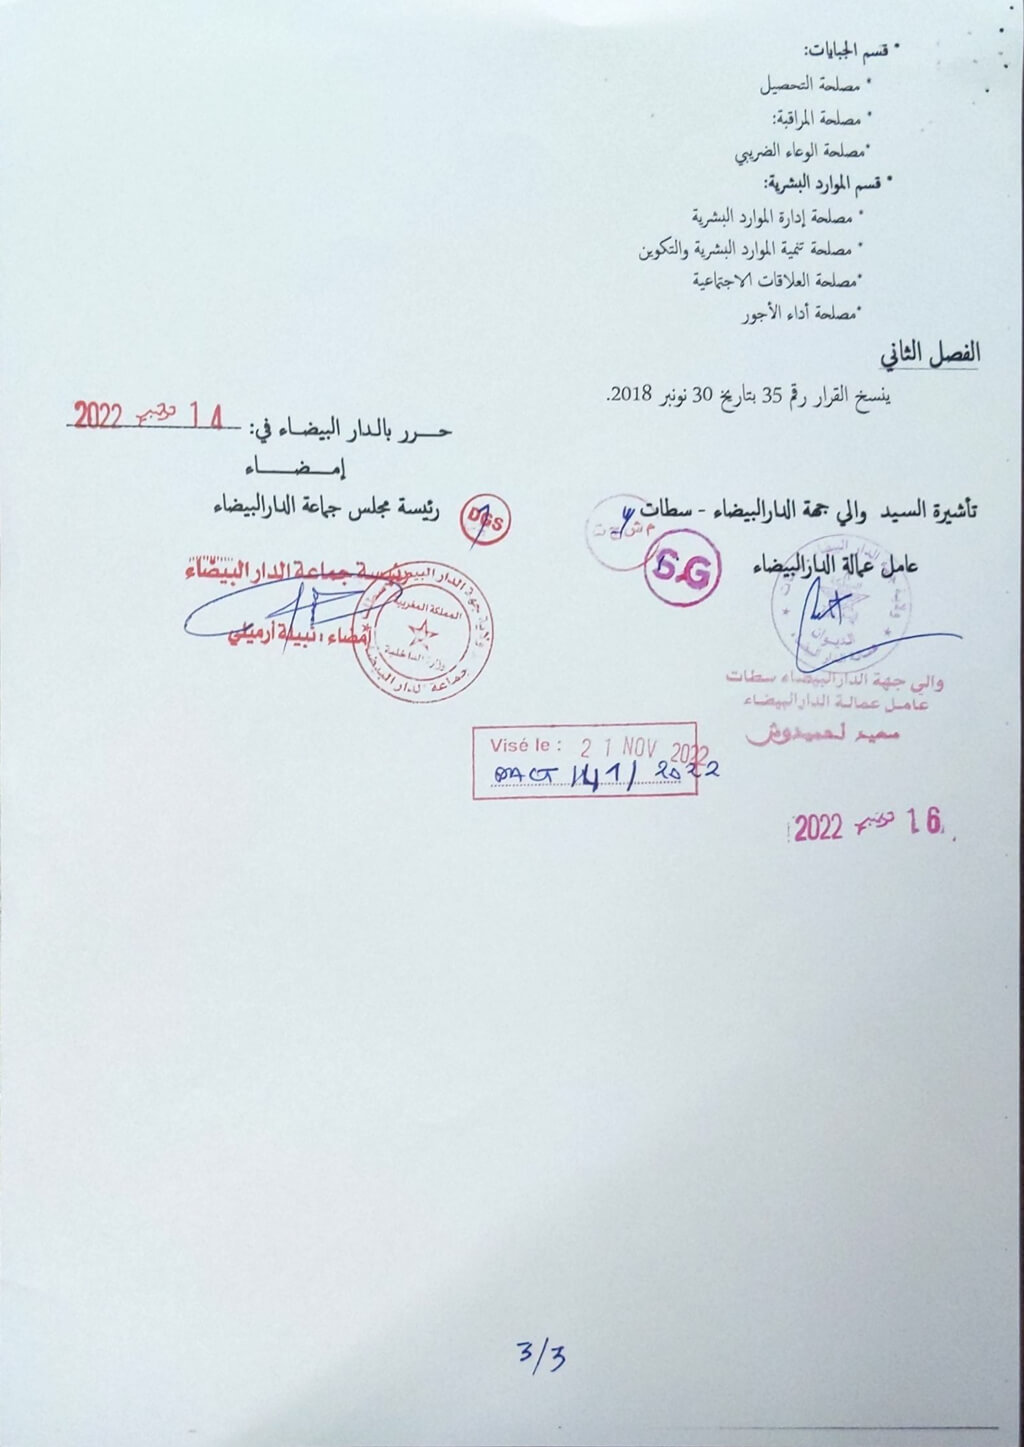 * قسم الجبايات:
* مصلحة التحصيل
* مصلحة المراقبة:
*مصلحة الوعاء الضريبي
* قسم الموارد البشرية:
* مصلحة إدارة الموارد البشرية
* مصلحة تنمية الموارد البشرية والتكوين
*مصلحة العلاقات الاجتماعية
*مصلحة أداء الأجور
الفصل الثاني
ينسخ القرار رقم 35 بتاريخ 30 نونبر 2018.
حـــرر بالدار البيضاء في: 14 نونبر 2022
إمــضــــاء
تأشيرة السيد والي جهة الدارالبيضاء - سطات
عامل عمالة الدارالبيضاء
رئيسة مجلس جماعة الدارالبيضاء
DGS
S.G
رئيسة جماعة الدار البيضاء
إمضاء : نبيلة أرميلي
المملكة المغربية
وزارة الداخلية
جماعة الدار البيضاء
الديوان
والي جهة الدارالبيضاء سطات
عامل عمالة الدارالبيضاء
سعيد احميدوش
Visé le : 21 NOV 2022
141/2022
16 نونبر 2022
3/3